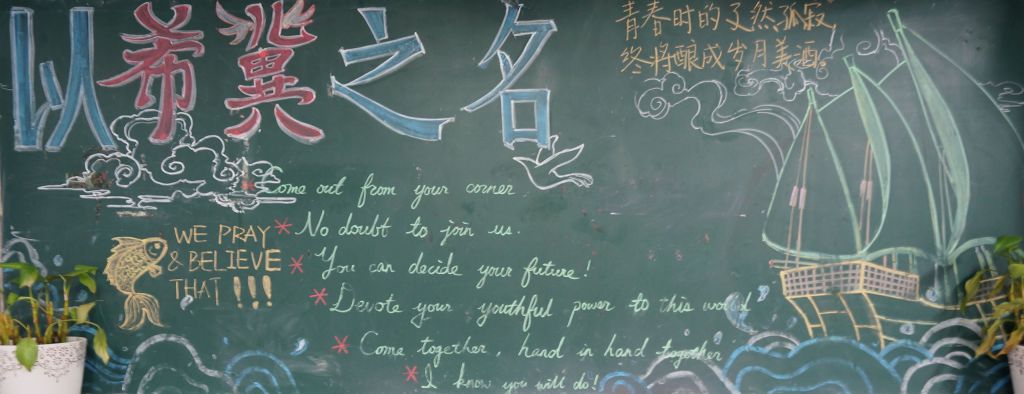 以希冀之名
青春时的孑然孤寂
终将酿成岁月美酒。
Come out from your corner
No doubt to join us.
WE PRAY
& BELIEVE
THAT !!!
You can decide your future!
Devote your youthful power to this world
Come together, hand in hand together
I know you will do!